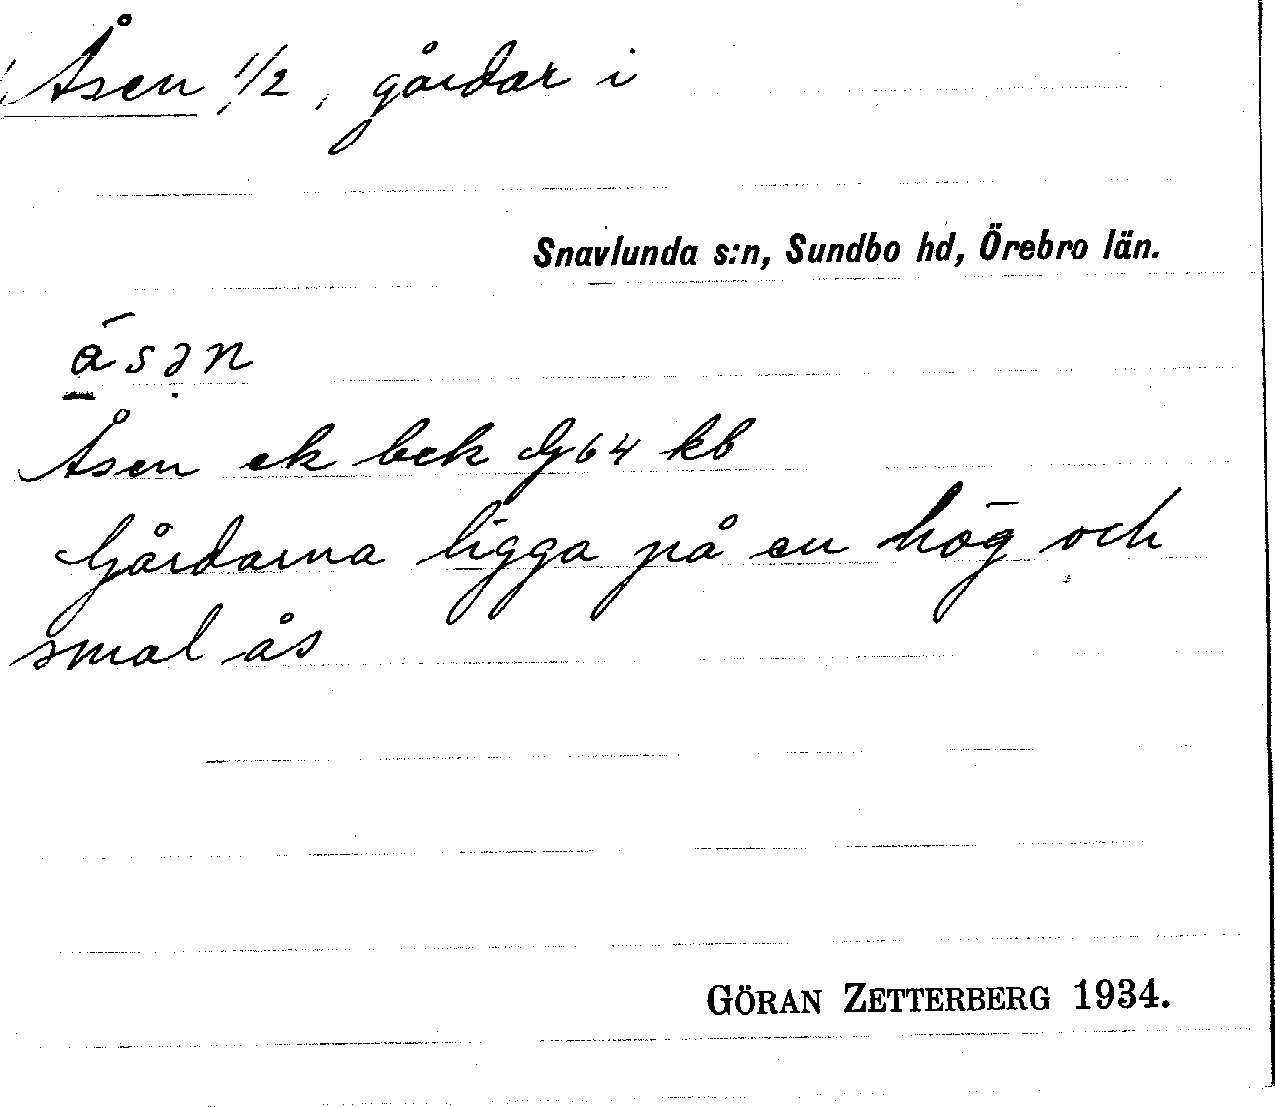 Åsen 1/2, gårdar i
Snavlunda s:n, Sundbo hd, Örebro län.
åsən
Åsen ek bek G64 kb
Gårdarna ligga på en hög och
smal ås
GÖRAN ZETTERBERG 1934.